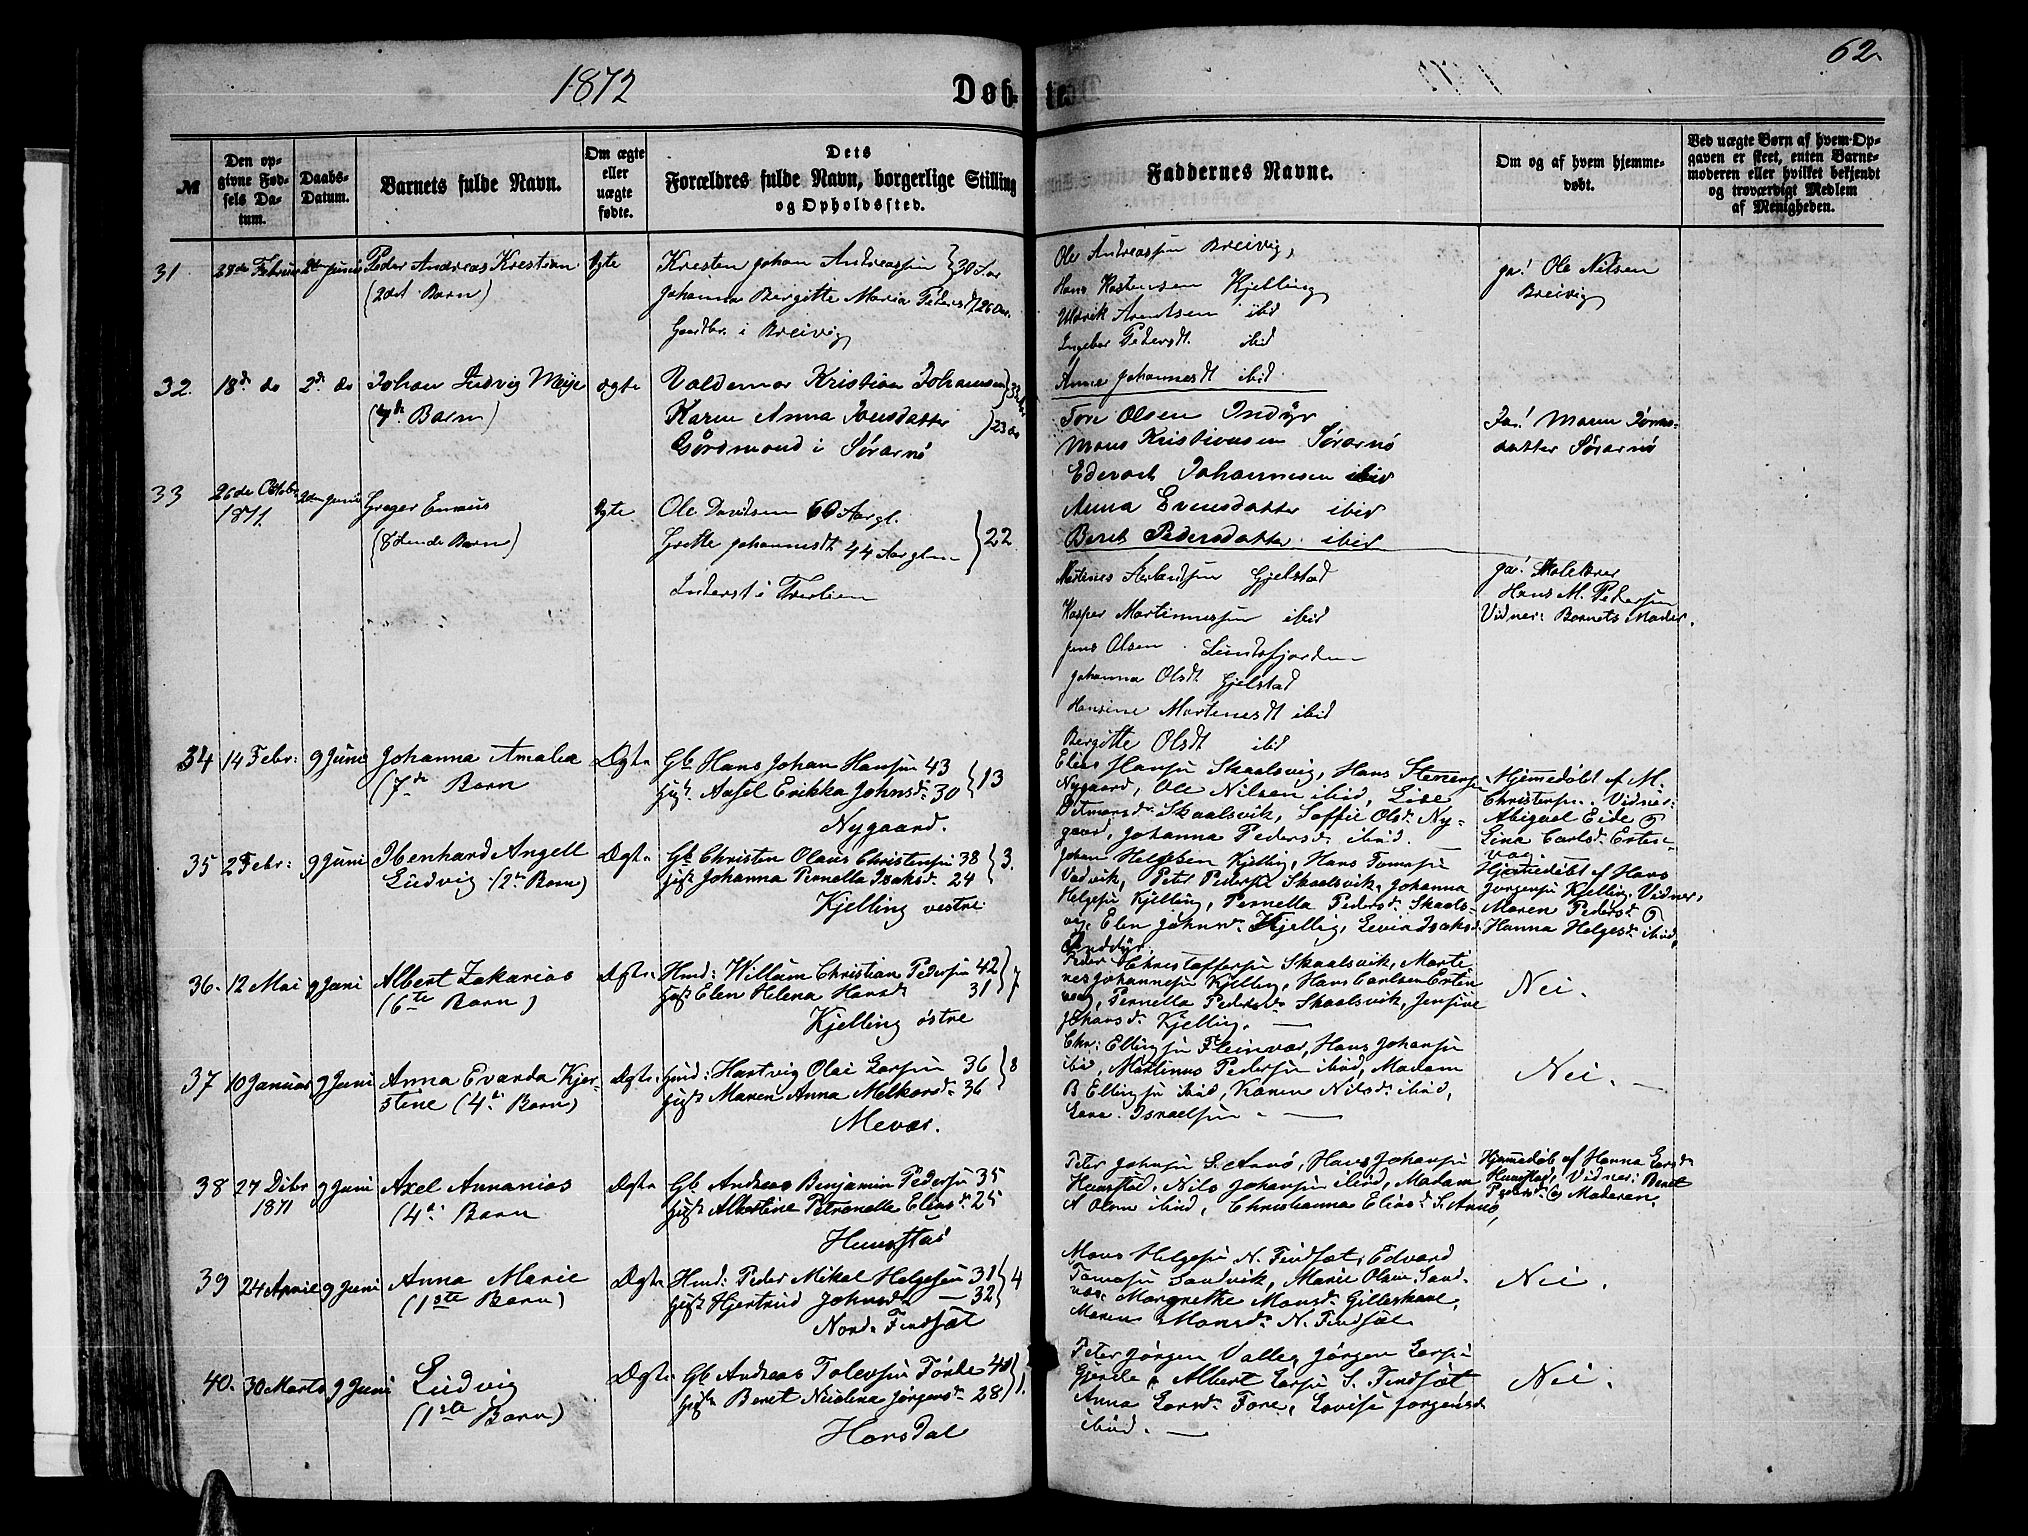 1872
Døbte
62.
№
Den opgivne Fødsels Datum.
Daabs-Datum.
Barnets fulde Navn.
Om ægte eller uægte fødte.
Dets Forældres fulde Navn, borgerlige Stilling og Opholdssted.
Faddernes Navne.
Om og af hvem hjemmedøbt.
Ved uægte Børn af hvem Opgaven er skeet, enten Barnemoderen eller hvilket bekjendt og troværdigt Medlem af Menigheden.
31
28de Februar
2den Juni
Peder Andreas Krestian
(2det Barn)
Ægte
Kresten Johan Andreassen } 30 Aar
Johanna Bergitte Maria Pedersdt } 26 Aar
Gaardbr. i Breivig
Ole Andreassen Breivig,
Hans Kjelling
Arentsen ibid
Ingebor Pedersdt ibid
Anne Johannesdt ibid
ja! Ole Nilsen
Breivig
32.
18de do
2de do
Johan Ludvig Meyer
Barn)
ægte
Valdemar Kristian Johansen
Karen Anna Jensdatter } 23 do
Gårdmand i Sørarnø
Tore Olsen Indyr
Mons Kristiansen Sørarnø
Edevart Johannesen ibid
Anna Evensdatter ibid
Beret Pedersdatter ibid
Ja! Maren Jons-
datter Sørarnø
33
26de Octobr
1871
2den Juni
Greger Enevus
(8tende Barn)
Ægte
Ole Davidsen 60 Aar gl.
Grette Johannesdt 44 Aar glem } 22
Inderst i Tverlien
Martines Gjelstad
Kasper Martinussen ibid
Jens Olsen
Johanna Olsdt Gjelstad
Hansine Martinesdt ibid
Bergitte Olsdt ibid
ja! Skolelærer
Hans M. Pedersen
Vidner: Barnets Moder.
34
14 Febr:
9 Juni
Johanna Amalia
(7de Barn
Ægte
Gb Hans Johan Hansen 43
Axsel Erikka Johnsd. 30 } 13
Nygaard.
Elias Hansen Skaalsvig, Hans Stenersen
Nygaard, Ole Nilsen ibid, Lise
Ditmarsd. Skaalsvik, Soffie Olsd. Ny-
gaard, Johanna Pedersd. ibid.
Hjemedøbt af M.
Christensen. Vidner:
Abigael Eide &
Lina Carlsd. Erten-
vaag.
35
2 Febr:
9 Juni
Ibenhard Angell
Ludvig (2de Barn)
Ægte
Gb Christen Olaus Christensen 38
Johanna Pernella Isaksd. 24 } 3.
Kjelling vestre
Johan Helgesen Kjelling, Hans Tomasen
Vadvik, Peter Pedersen Skaalsvik, Johanna
Helgesen Kjelling, Pernella Pedersd. Skaals-
vig, Elen Johnsd. Kjelling,
Hjemedøbt af Hans
Jorgensen Kjelling. Vidner,
Maren Pedersd. &
Hanna Helgesd. ibid.
36.
12 Mai
9 Juni
Albert Zakarias
(6te Barn)
Ægte
Hmd: Willum Christian Pedersen 42
Elen Helena Hansd. 31 } 7
Kjelling østre
Peder Christoffersen Skaalsvik, Marti-
nes Johannesen Kjelling, Hans Carlsen Erten-
vaag, Pernella Pedersd. Skaalsvik, Jensine
Johansd. Kjelling.
Nei.
37
10 Januar
9 Juni
Anna Evarda Kjer-
stene (4de Barn)
Ægte
Hmd: Hartvig Olai Larsen 36
Maren Anna Melkersd. 36 } 8
Mevær.
Chr: Ellingsen Fleinvær, Hans Johansen
ibid, Martinus Pedersen ibid, Madam
B. Ellingsen ibid, Karen Nilsd. ibid,
Lars Israelsen
Nei. —
38
27 Dcbr
1871
9 Juni
Axel Annanias
(4de Barn
Ægte
Gb Andreas Benjamin Pedersen 35
Albertine Petronelle Eliasd. 25
Hunstad
Peter Johnsen S. Arnø, Hans Johansen
Hunstad, Nils Johansen ibid, Madam
A Olsen ibid, Christianna Eliasd. S. Arnø,
Hjemedøb af Hanna Larsd.
Hunstad, Vidner: Beret
Pedersd. og Moderen.
39
24 April
9 Juni
Anna Marie
(1ste Barn)
Ægte
Hmd: Peder Mikal Helgesen 31
Hjertrud Johnsdt — 32 } 4
Nord. Findsæt
Mons Helgesen N. Findsæt, Edvard
Tomasen Sandvik, Marie Olsen Sand-
vik, Margrethe Monsd. Gilleskaal,
Maren Monsd. N. Findsæt.
Nei.
40.
30 Marts
9 Juni
Ludvig
(1ste Barn)
Ægte
Gb Andreas Tolevsen Førde 40
Beret Nicolina Jørgensd. 28 } 1.
Horsdal
Peter Jørgen Valle, Jørgen Larsen
Albert Larsen S. Findsæt
Anna Larsd. Fore, Lovise Jorgensd.
ibid. —
Nei.